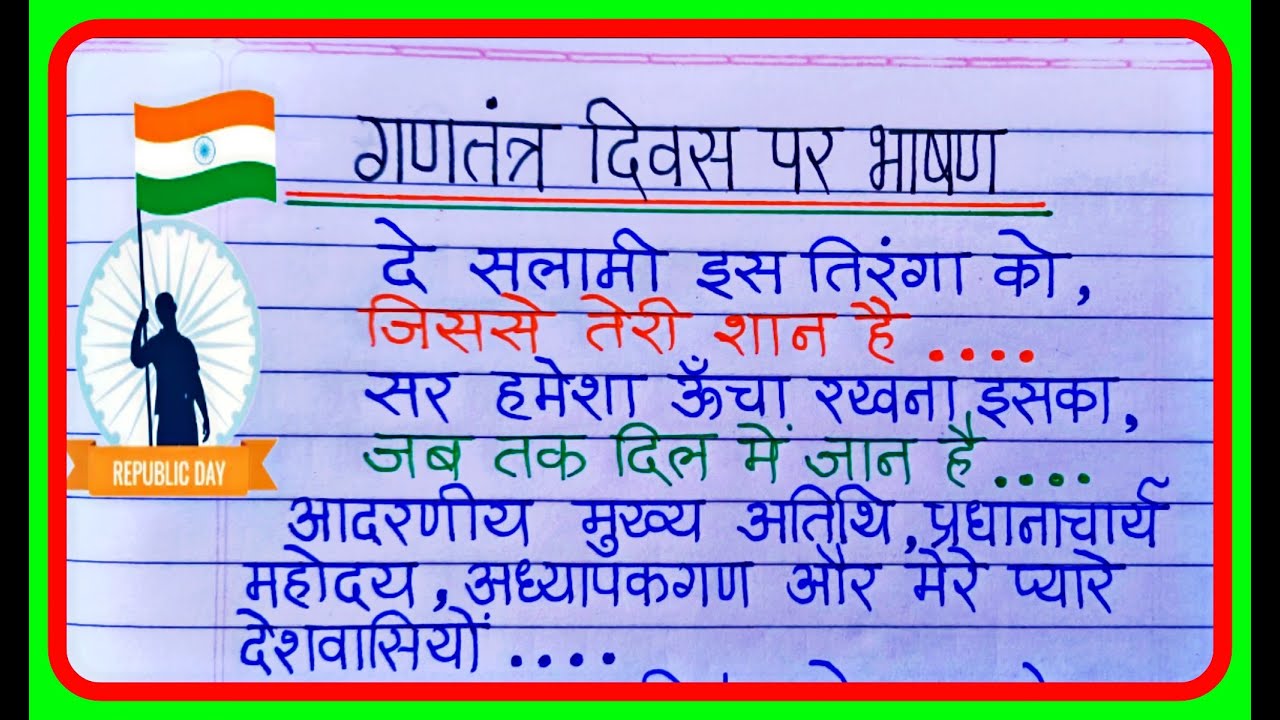 गणतंत्र दिवस पर भाषण
दे सलामी इस तिरंगा को,
जिससे तेरी शान है ....
सर हमेशा ऊँचा रखना इसका,
जब तक दिल में जान है ....
REPUBLIC DAY
आदरणीय मुख्य अतिथि, प्रधानाचार्य
महोदय, अध्यापकगण और मेरे प्यारे
देशवासियों ....